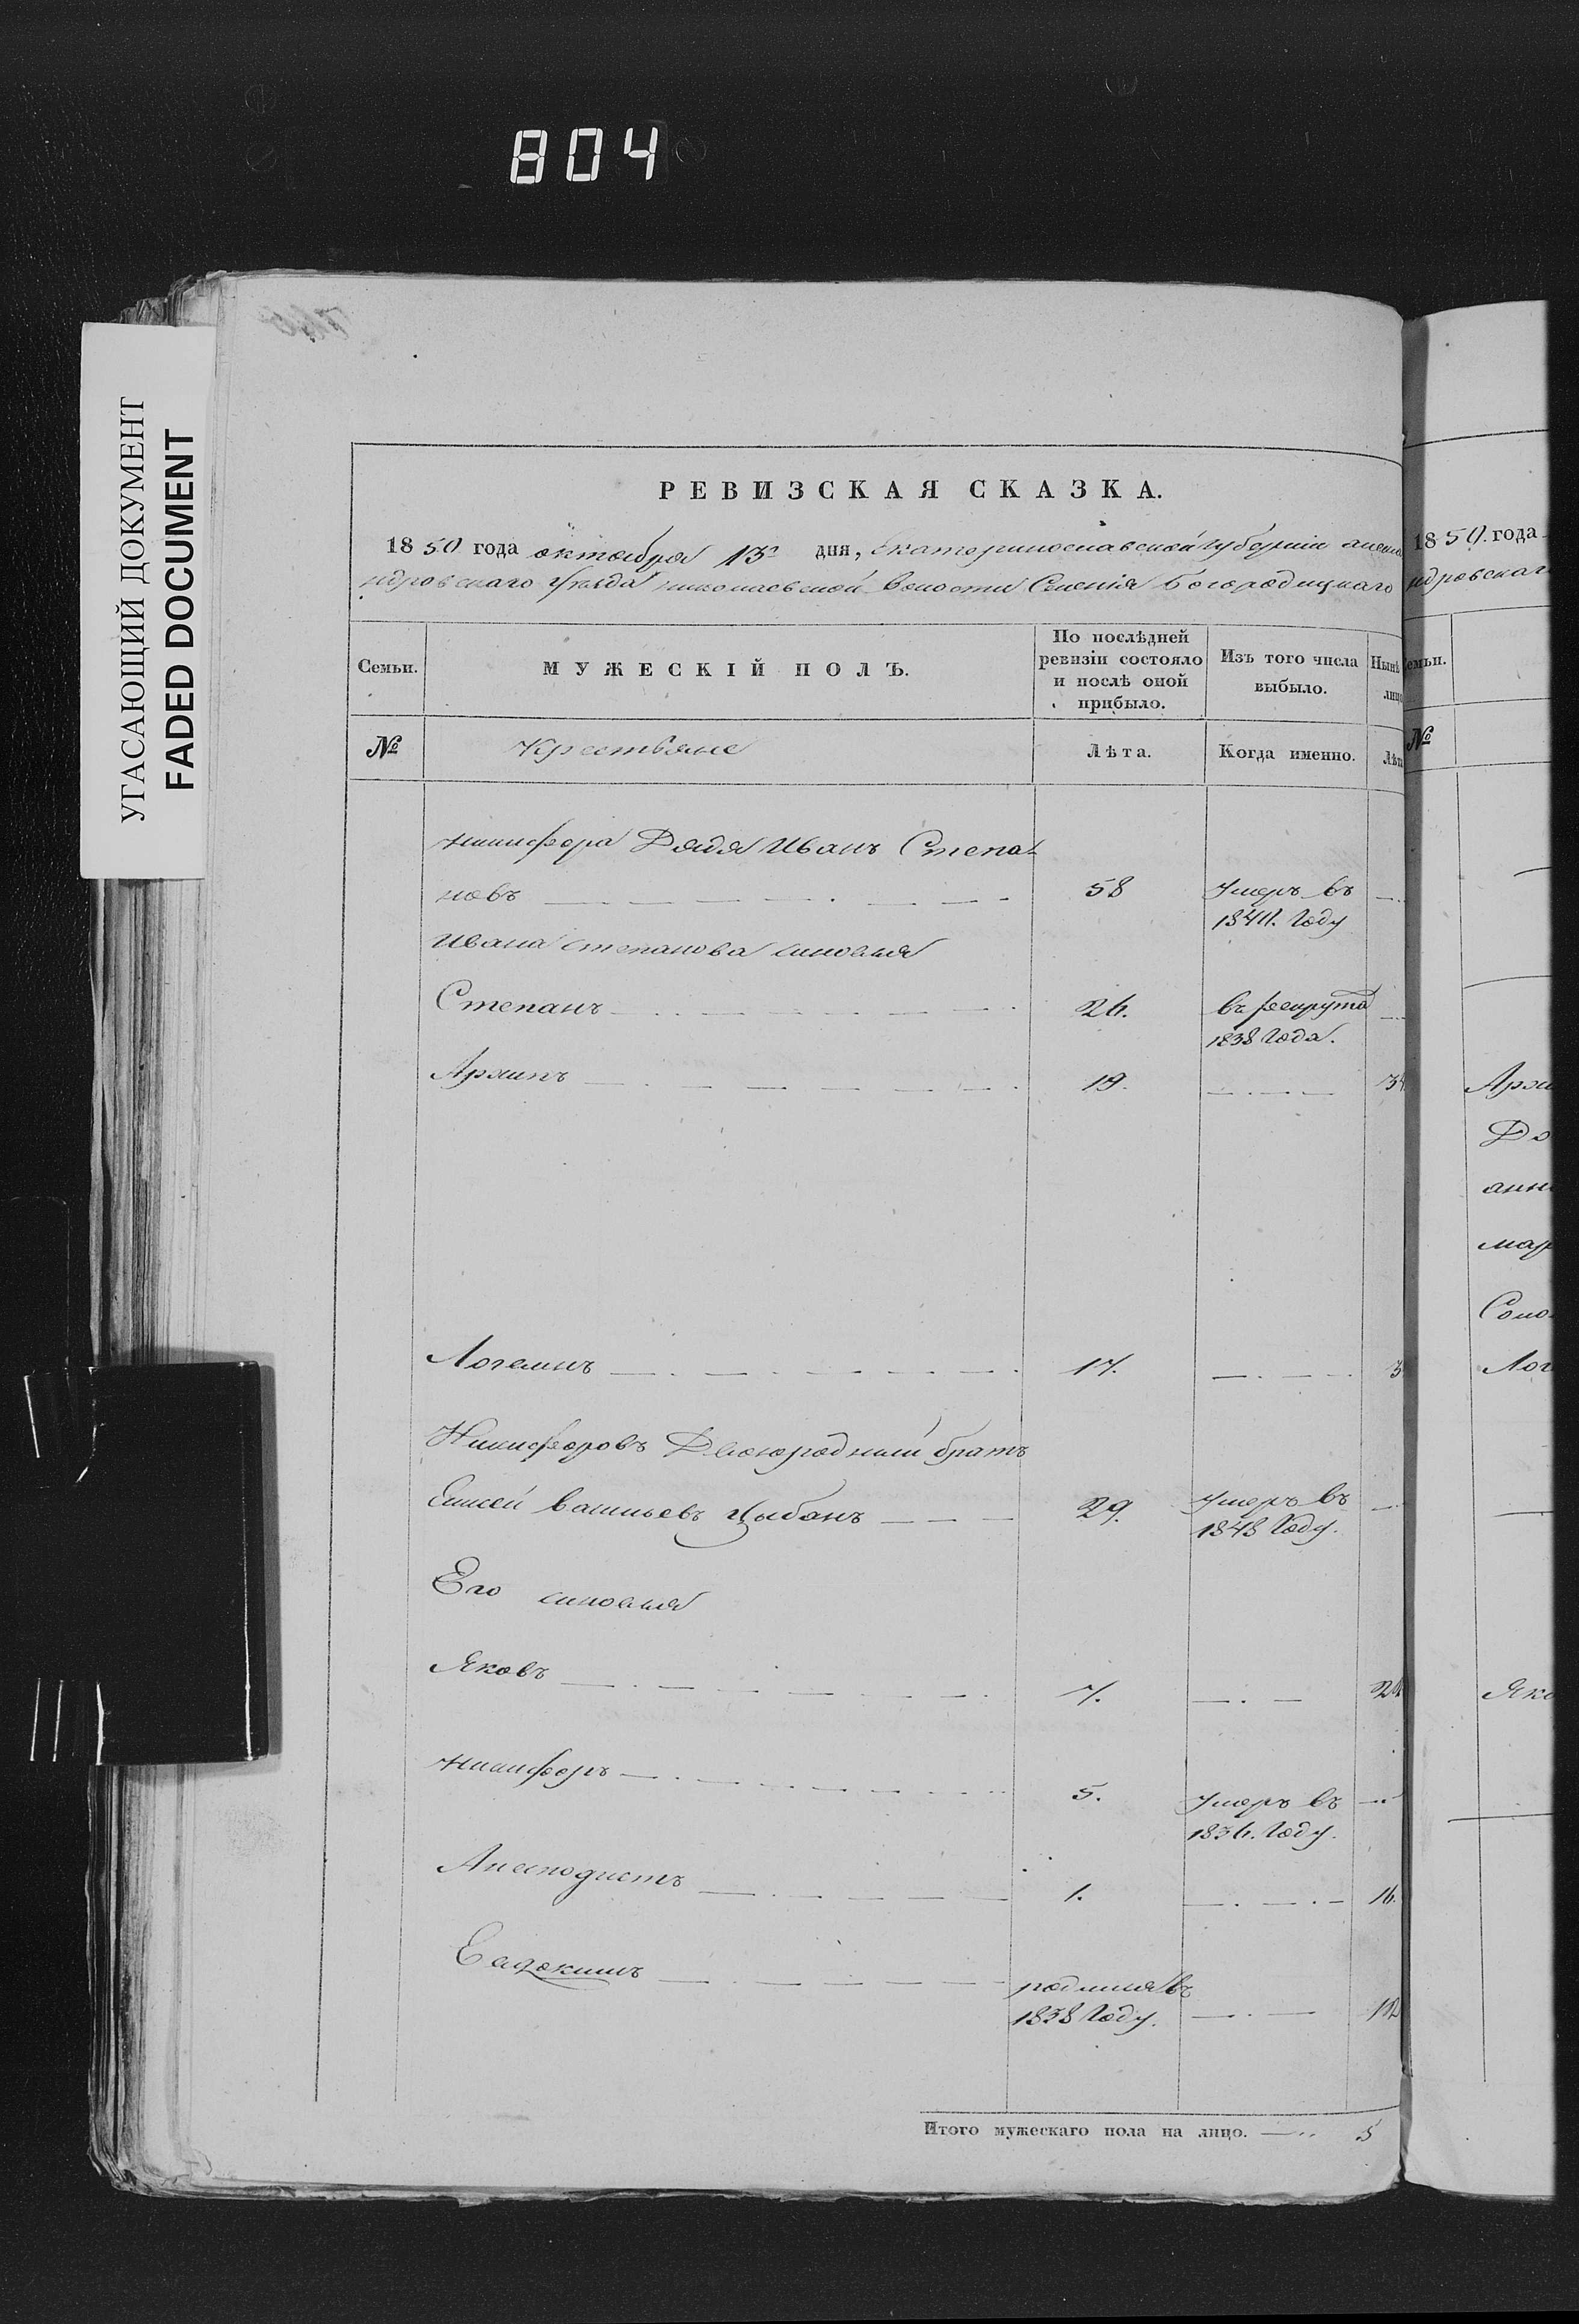 804
УГАСАЮЩИЙ ДОКУМЕНТ
FADED DOCUMENT
РЕВИЗСКАЯ СКАЗКА.
1850 года октября 13 дня, Екатеринославской губерніи алекса
ндровскаго уѣзда николаевской волости Селенія Богородицкаго
Семьи.
МУЖЕСКІЙ ПОЛЪ.
По послѣдней ревизіи состояло и послѣ оной прибыло.
Изъ того числа выбыло.
Нынѣ лицо
№ Крестьяне Лѣта. Когда именно. Лѣта
никифора Дядя Иванъ Степа-
новъ 58 Умеръ въ
1841. году
Ивана степанова сыновья
Степанъ 26. въ рекрута
1838 Года.
Архипъ 19. 34
Логвинъ 17. 3
Никифоровъ Двоюродный братъ
Елисей васильевъ Цыбань 29. Умеръ въ
1848 Году.
Его сыновья
Яковъ 7. 22
никифоръ 5. Умеръ въ
1836. Году.
Анемподистъ 1. 16.
Евдокимъ родился въ
1838 Году. 12
Итого мужескаго пола на лицо. 5
1850. года
ндровскаг
емьи.
№
Архи
До
анн
мар
Соло
Лог
Яко